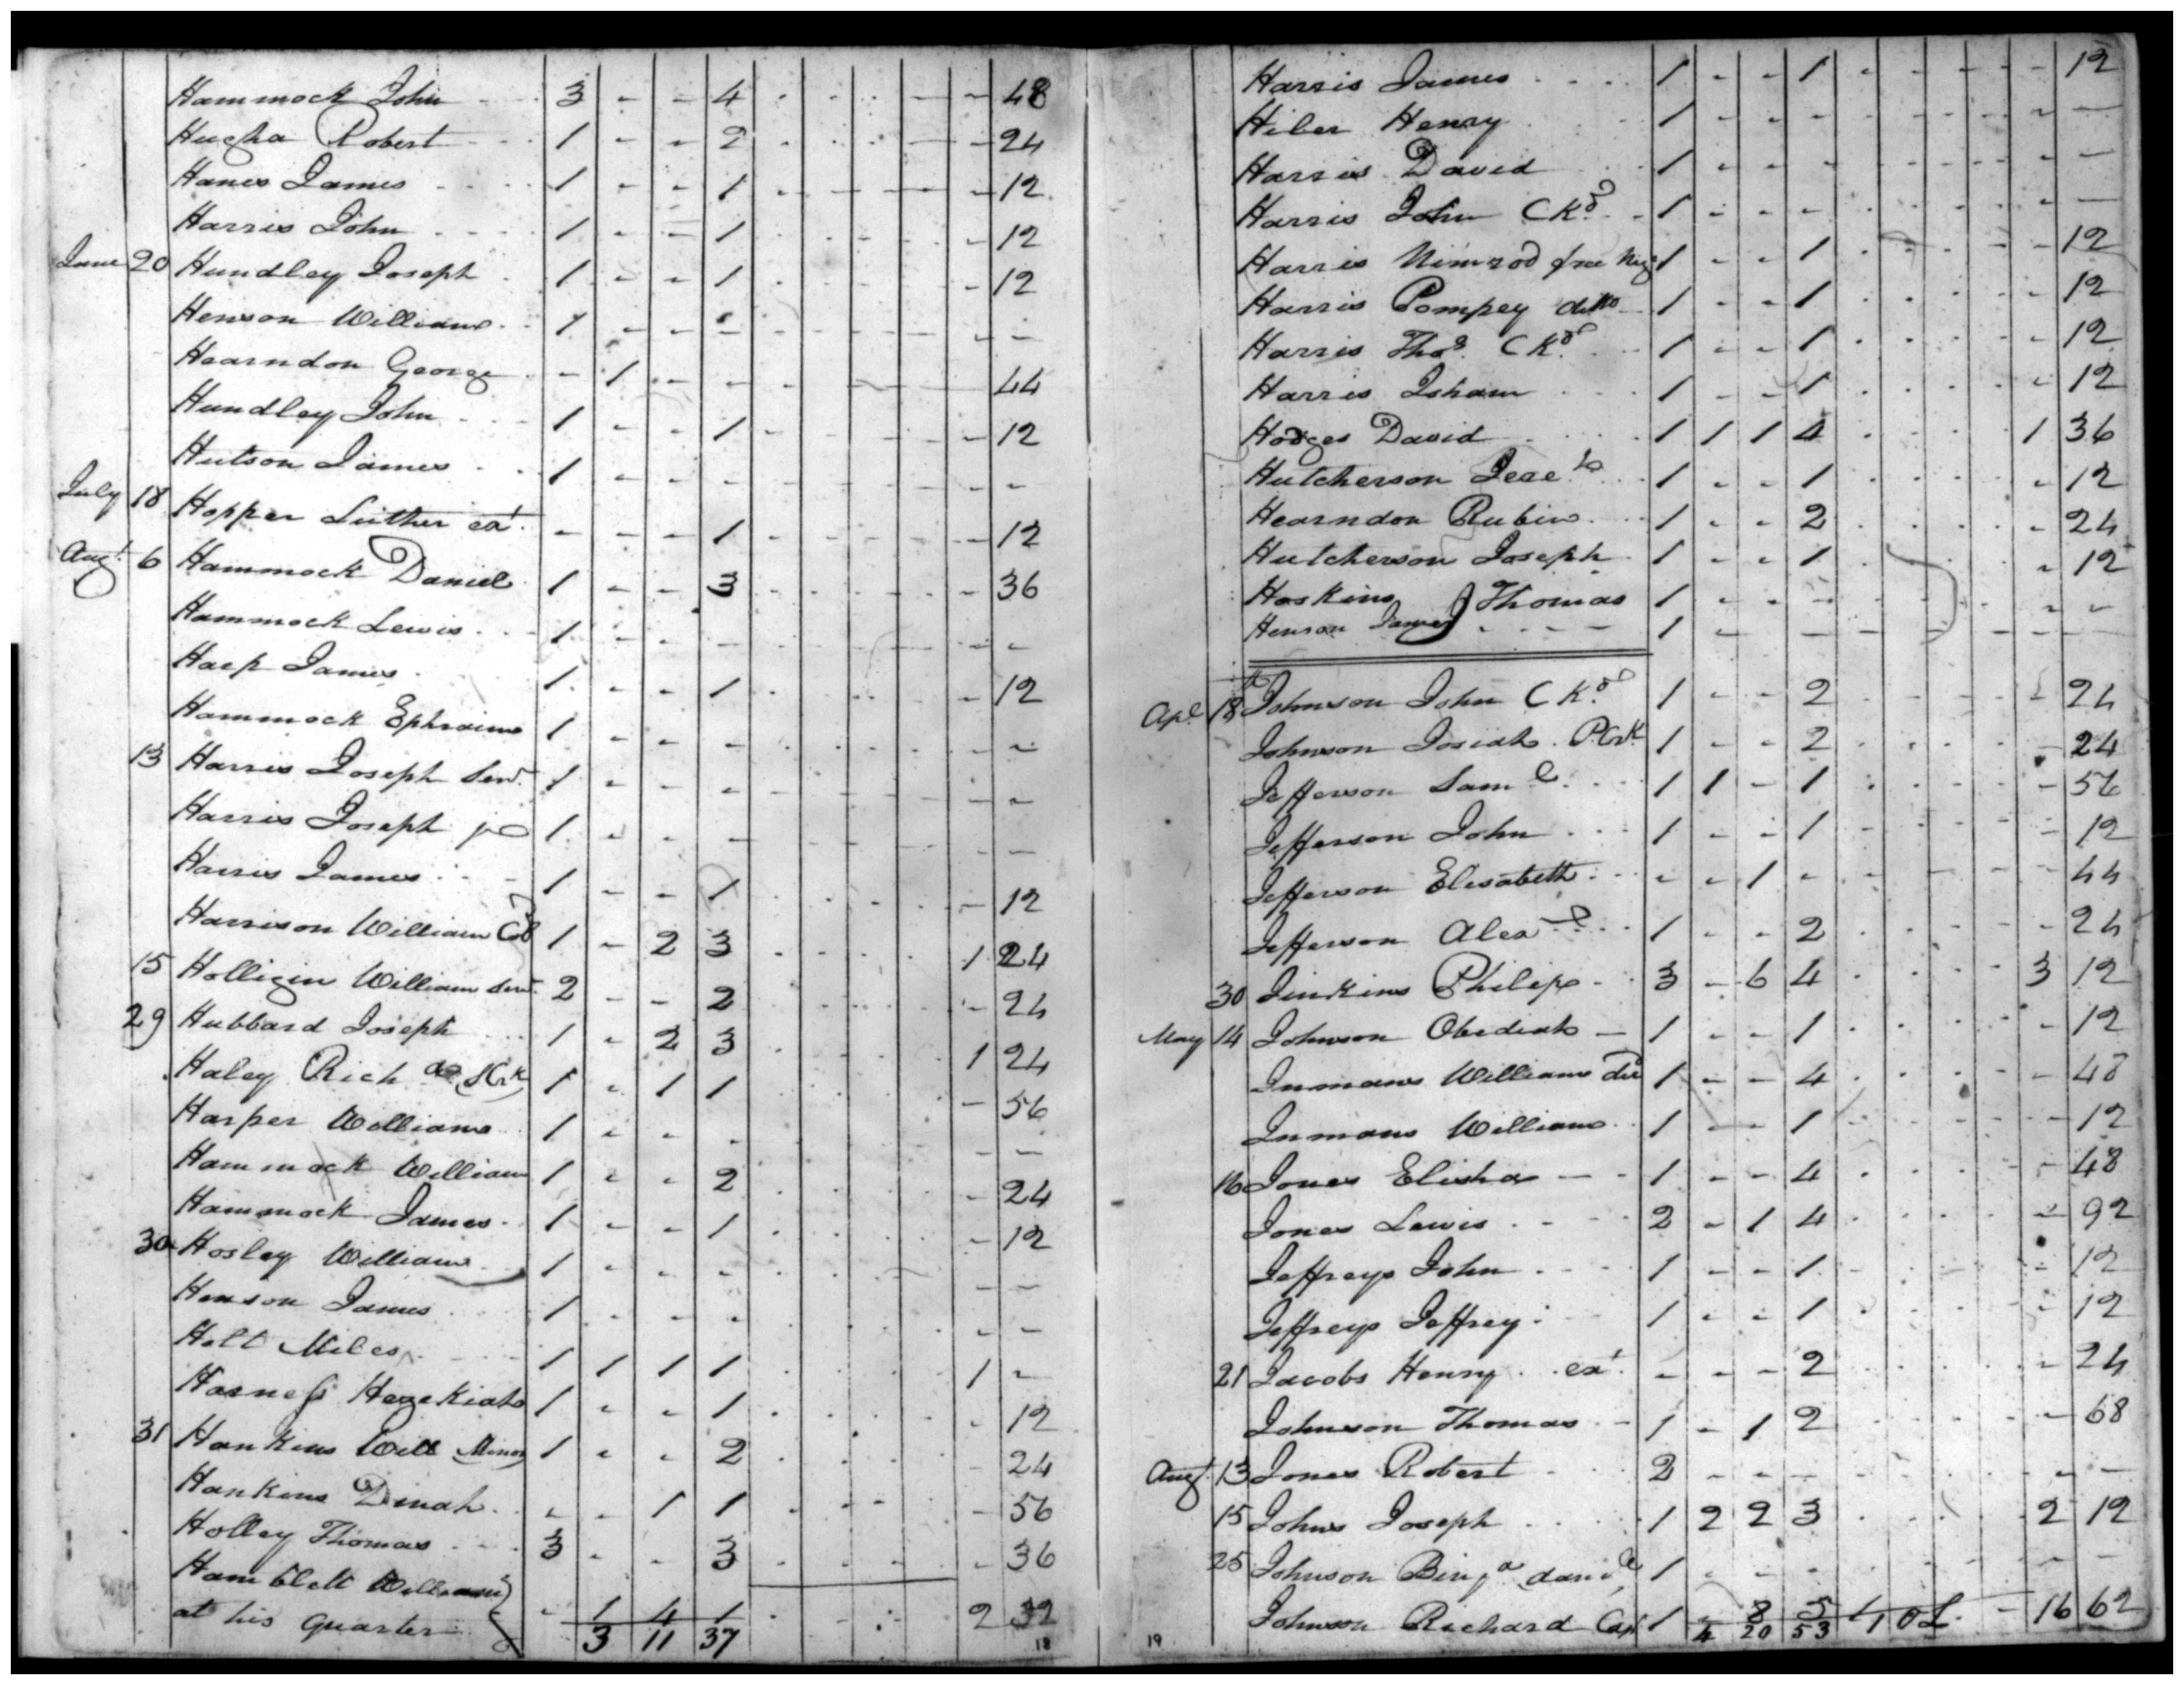 Hammock John - - 3 - - 4 - - - - - 48
Hughs Robert - - 1 - - 2 - - - - - 24
Hanes James - - 1 - - 1 - - - - - 12
Harris John - - 1 - - 1 - - - - - 12
June 20 Hundley Joseph - 1 - - 1 - - - - - 12
Henson William - 1 - - - - - - - - -
Hearndon George - - 1 - - - - - - - 44
Hundley John - - 1 - - 1 - - - - - 12
Hutson James - - 1 - - - - - - - - -
July 18 Hopper Luther ext. - - - 1 - - - - - 12
Augt. 6 Hammock Daniel 1 - - 3 - - - - - 36
Hammock Lewis - - 1 - - - - - - - - -
Harp James - 1 - - 1 - - - - - 12
Hammock Ephraim 1 - - - - - - - - -
13 Harris Joseph Senr. 1 - - - - - - - - -
Harris Joseph jr 1 - - - - - - - - -
Harris James - - 1 - - 1 - - - - - 12
Harrison William Co 1 - 2 3 - - - - 1 24
15 Holligin William Senr. 2 - - 2 - - - - - 24
29 Hubbard Joseph - - 1 - 2 3 - - - - 1 24
Haley Richd. 1 - 1 1 - - - - - 56
Harper William 1 - - - - - - - - -
Hammock William 1 - - 2 - - - - - 24
Hammock James - 1 - - 1 - - - - - 12
30 Hosley William 1 - - - - - - - - -
Henson James 1 - - - - - - - - -
Holt Miles - - 1 1 1 1 - - - - 1 -
Harness Hezekiah 1 - - 1 - - - - - 12
31 Hankins Will Minor 1 - - 2 - - - - - 24
Hankins Dinah - - - 1 1 - - - - - 56
Holley Thomas - - 3 - - 3 - - - - - 36
Hamblett William }
at his Quarter - 1 4 1 - - - - 2 32
3 11 37
18
Harris James - - 1 - - 1 - - - - - 12
Hiler Henry - - 1 - - - - - - - - -
Harris David - - 1 - - - - - - - - -
Harris John CKd. - 1 - - - - - - - - -
Harris Nimrod free Neg. 1 - - 1 - - - - - 12
Harris Pompey ditto 1 - - 1 - - - - - 12
Harris Thos. CKd. - 1 - - 1 - - - - - 12
Harris Isham - - 1 - - 1 - - - - - 12
Hodges David - - 1 1 1 4 - - - - 1 36
Hutcherson Jere - - 1 - - 1 - - - - - 12
Hearndon Rubin - - 1 - - 2 - - - - - 24
Hutcherson Joseph 1 - - 1 - - - - - 12
Hoskins Thomas 1 - - - - - - - - -
Henson James - - - 1 - - - - - - - - -
Apl. 18 Johnson John CKd. 1 - - 2 - - - - - 24
Johnson Josiah 1 - - 2 - - - - - 24
Jefferson Saml. - - 1 1 - 1 - - - - - 56
Jefferson John - - 1 - - 1 - - - - - 12
Jefferson Elisabeth - - - 1 - - - - - - 44
Jefferson Alexr. - - 1 - - 2 - - - - - 24
30 Jinkins Philip - - 3 - 6 4 - - - - 3 12
May 14 Johnson Obediah - 1 - - 1 - - - - - 12
Inmans William 1 - - 4 - - - - - 48
Inmans William - 1 - - 1 - - - - - 12
16 Jones Elisha - - 1 - - 4 - - - - - 48
Jones Lewis - - 2 - 1 4 - - - - - 92
Jeffreys John - - 1 - - 1 - - - - - 12
Jeffreys Jeffrey - - 1 - - 1 - - - - - 12
21 Jacobs Henry ext. - - - 2 - - - - - 24
Johnson Thomas - 1 - 1 2 - - - - - 68
Augt. 13 Jones Robert - - 2 - - - - - - - - -
15 Johns Joseph - - 1 2 2 3 - - - - 2 12
25 Johnson 1 - - - - - - - - -
Johnson Richard Cap 1 - 8 5 - 16 62
4 20 53
19